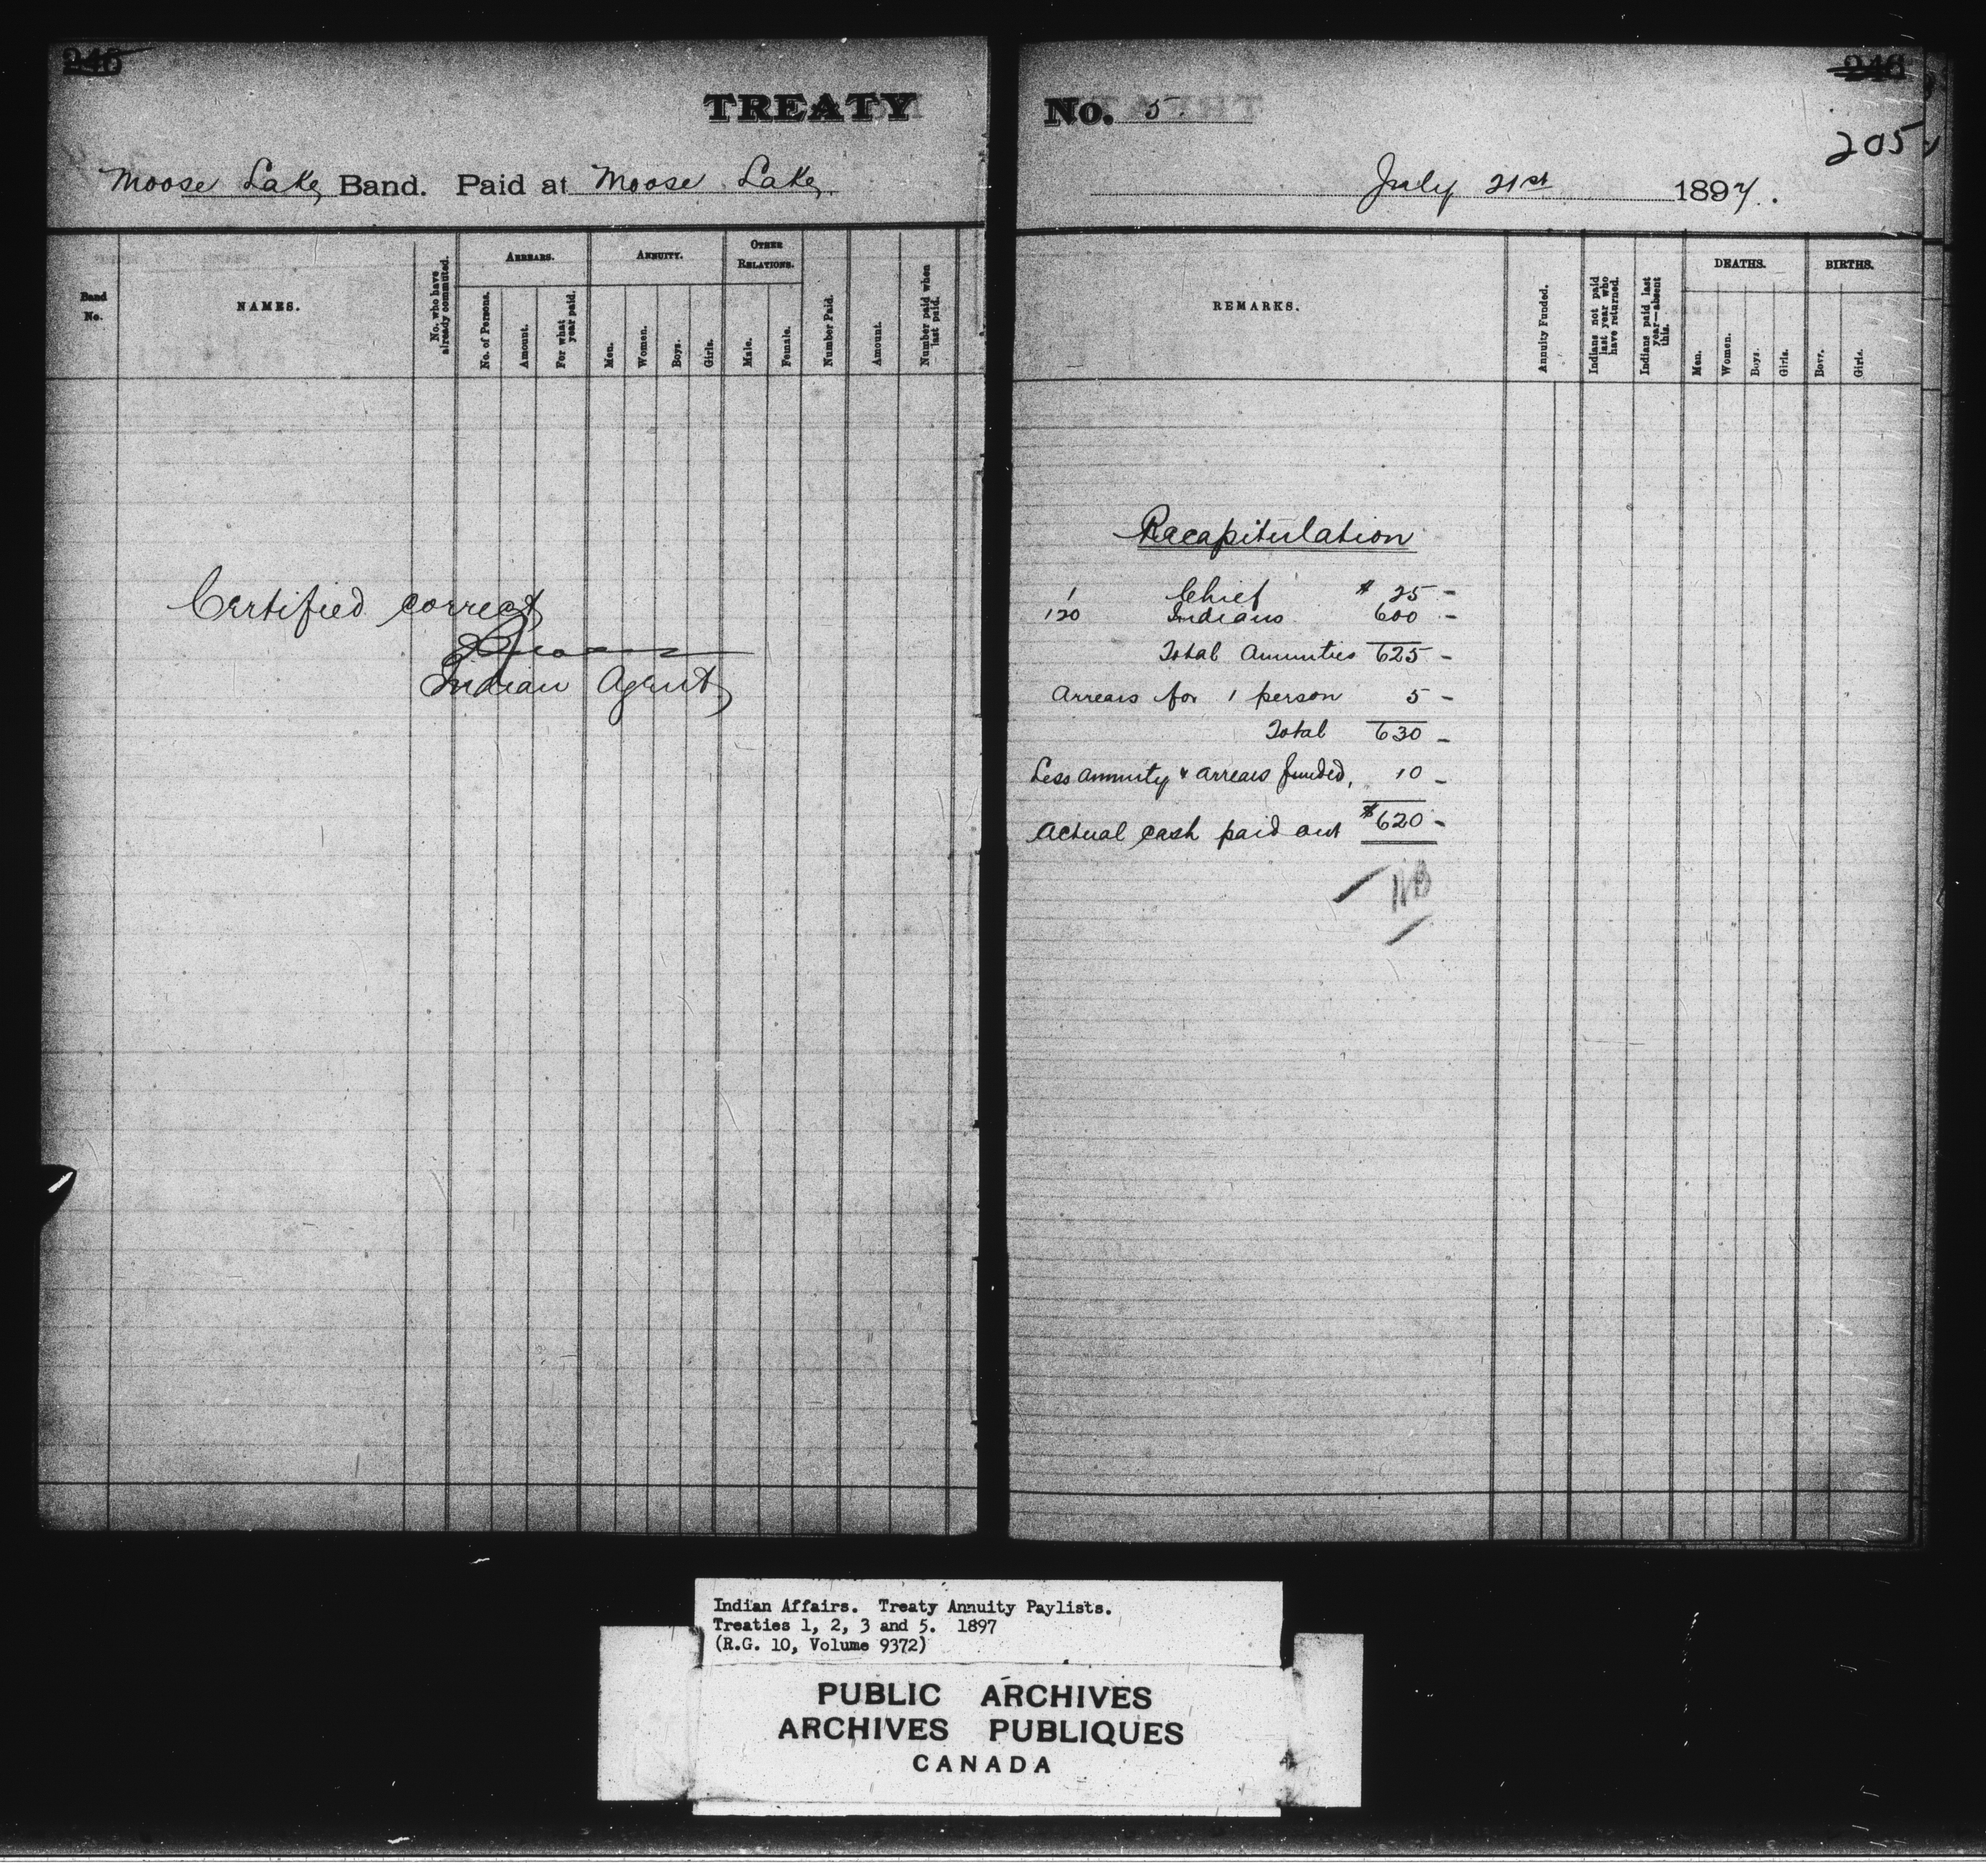 245
TREATY
Moose Lake Band. Paid at Moose Lake
Band No.
NAMES.
No. who have already commuted.
ARREARS.
No. of Persons.
Amount.
For what year paid.
ANNUITY.
Men.
Women.
Boys.
Girls.
OTHER RELATIONS.
Male.
Female.
Number Paid.
Amount.
Number paid when last paid.
Certified correct
Indian Agent
246
No. 5
205
July 21st 1897.
REMARKS.
Annuity Funded.
Indians not paid last year who have returned.
Indians paid last year—absent this.
DEATHS.
Men.
Women.
Boys.
Girls.
BIRTHS.
Boys.
Girls.
Recapitulation
1 Chief $ 25 -
120 Indians 600 -
Total Annuities 625 -
Arrears for 1 person 5 -
Total 630 -
Less annuity & arrears funded, 10 -
Actual cash paid out $620 -
Indian Affairs. Treaty Annuity Paylists.
Treaties 1, 2, 3 and 5. 1897
(R.G. 10, Volume 9372)
PUBLIC ARCHIVES
ARCHIVES PUBLIQUES
CANADA